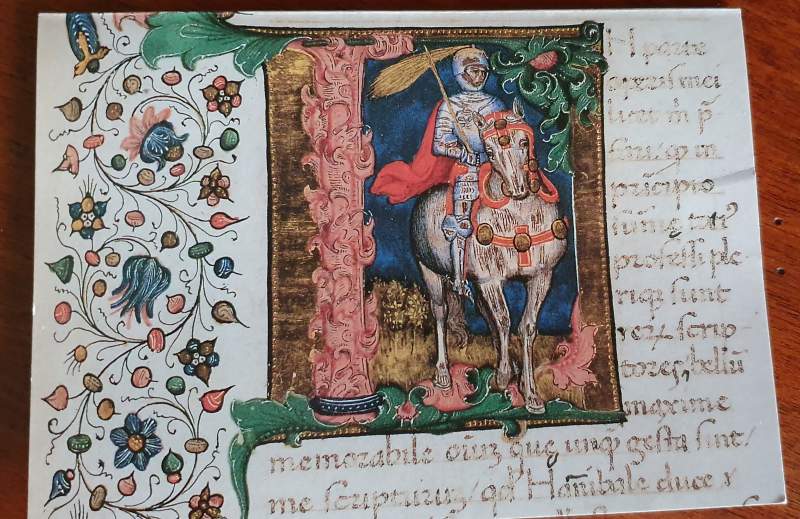 N parte
operis mei
licet m̄ p̄
fari, in
prīcipio
summe toti⁹
professi ple
riqꝫ sunt
scrip
tores, bellū
maxime
memorabile oīuꝫ que unq̄ gesta sint
me scripturuꝫ, qd̄ Hānibale duce